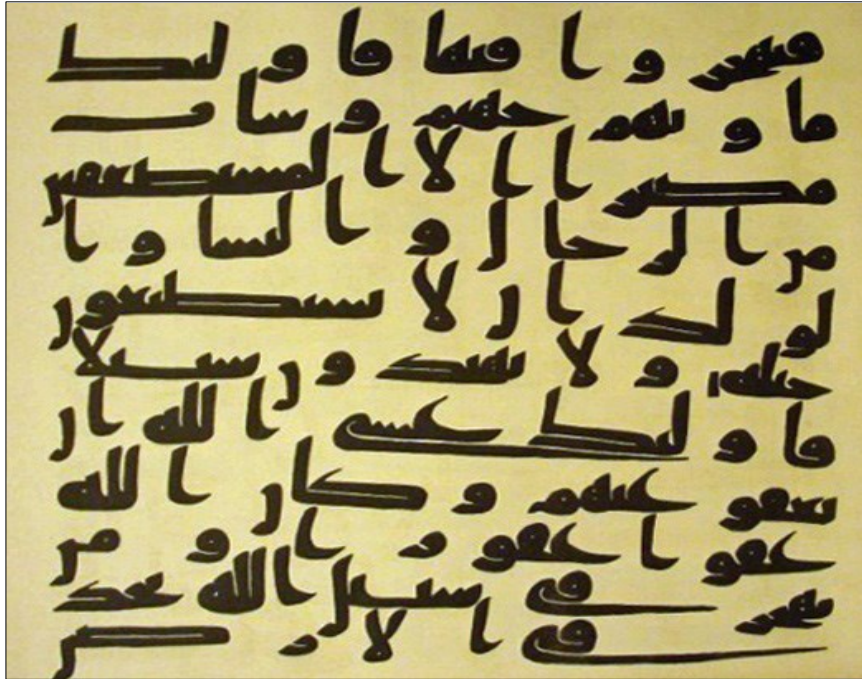 فتهجروا فيها فاولئك
ماويهم جهنم وسات
مصيرا الا المستضعفين
من الرجال والنسا وا
لولدان لا يستطيعون
حيلة ولا يهتدون سبيلا
فاولئك عسى الله ان
يعفو عنهم وكان الله
عفوا غفورا ومن
يهجر في سبيل الله يجد
في الارض